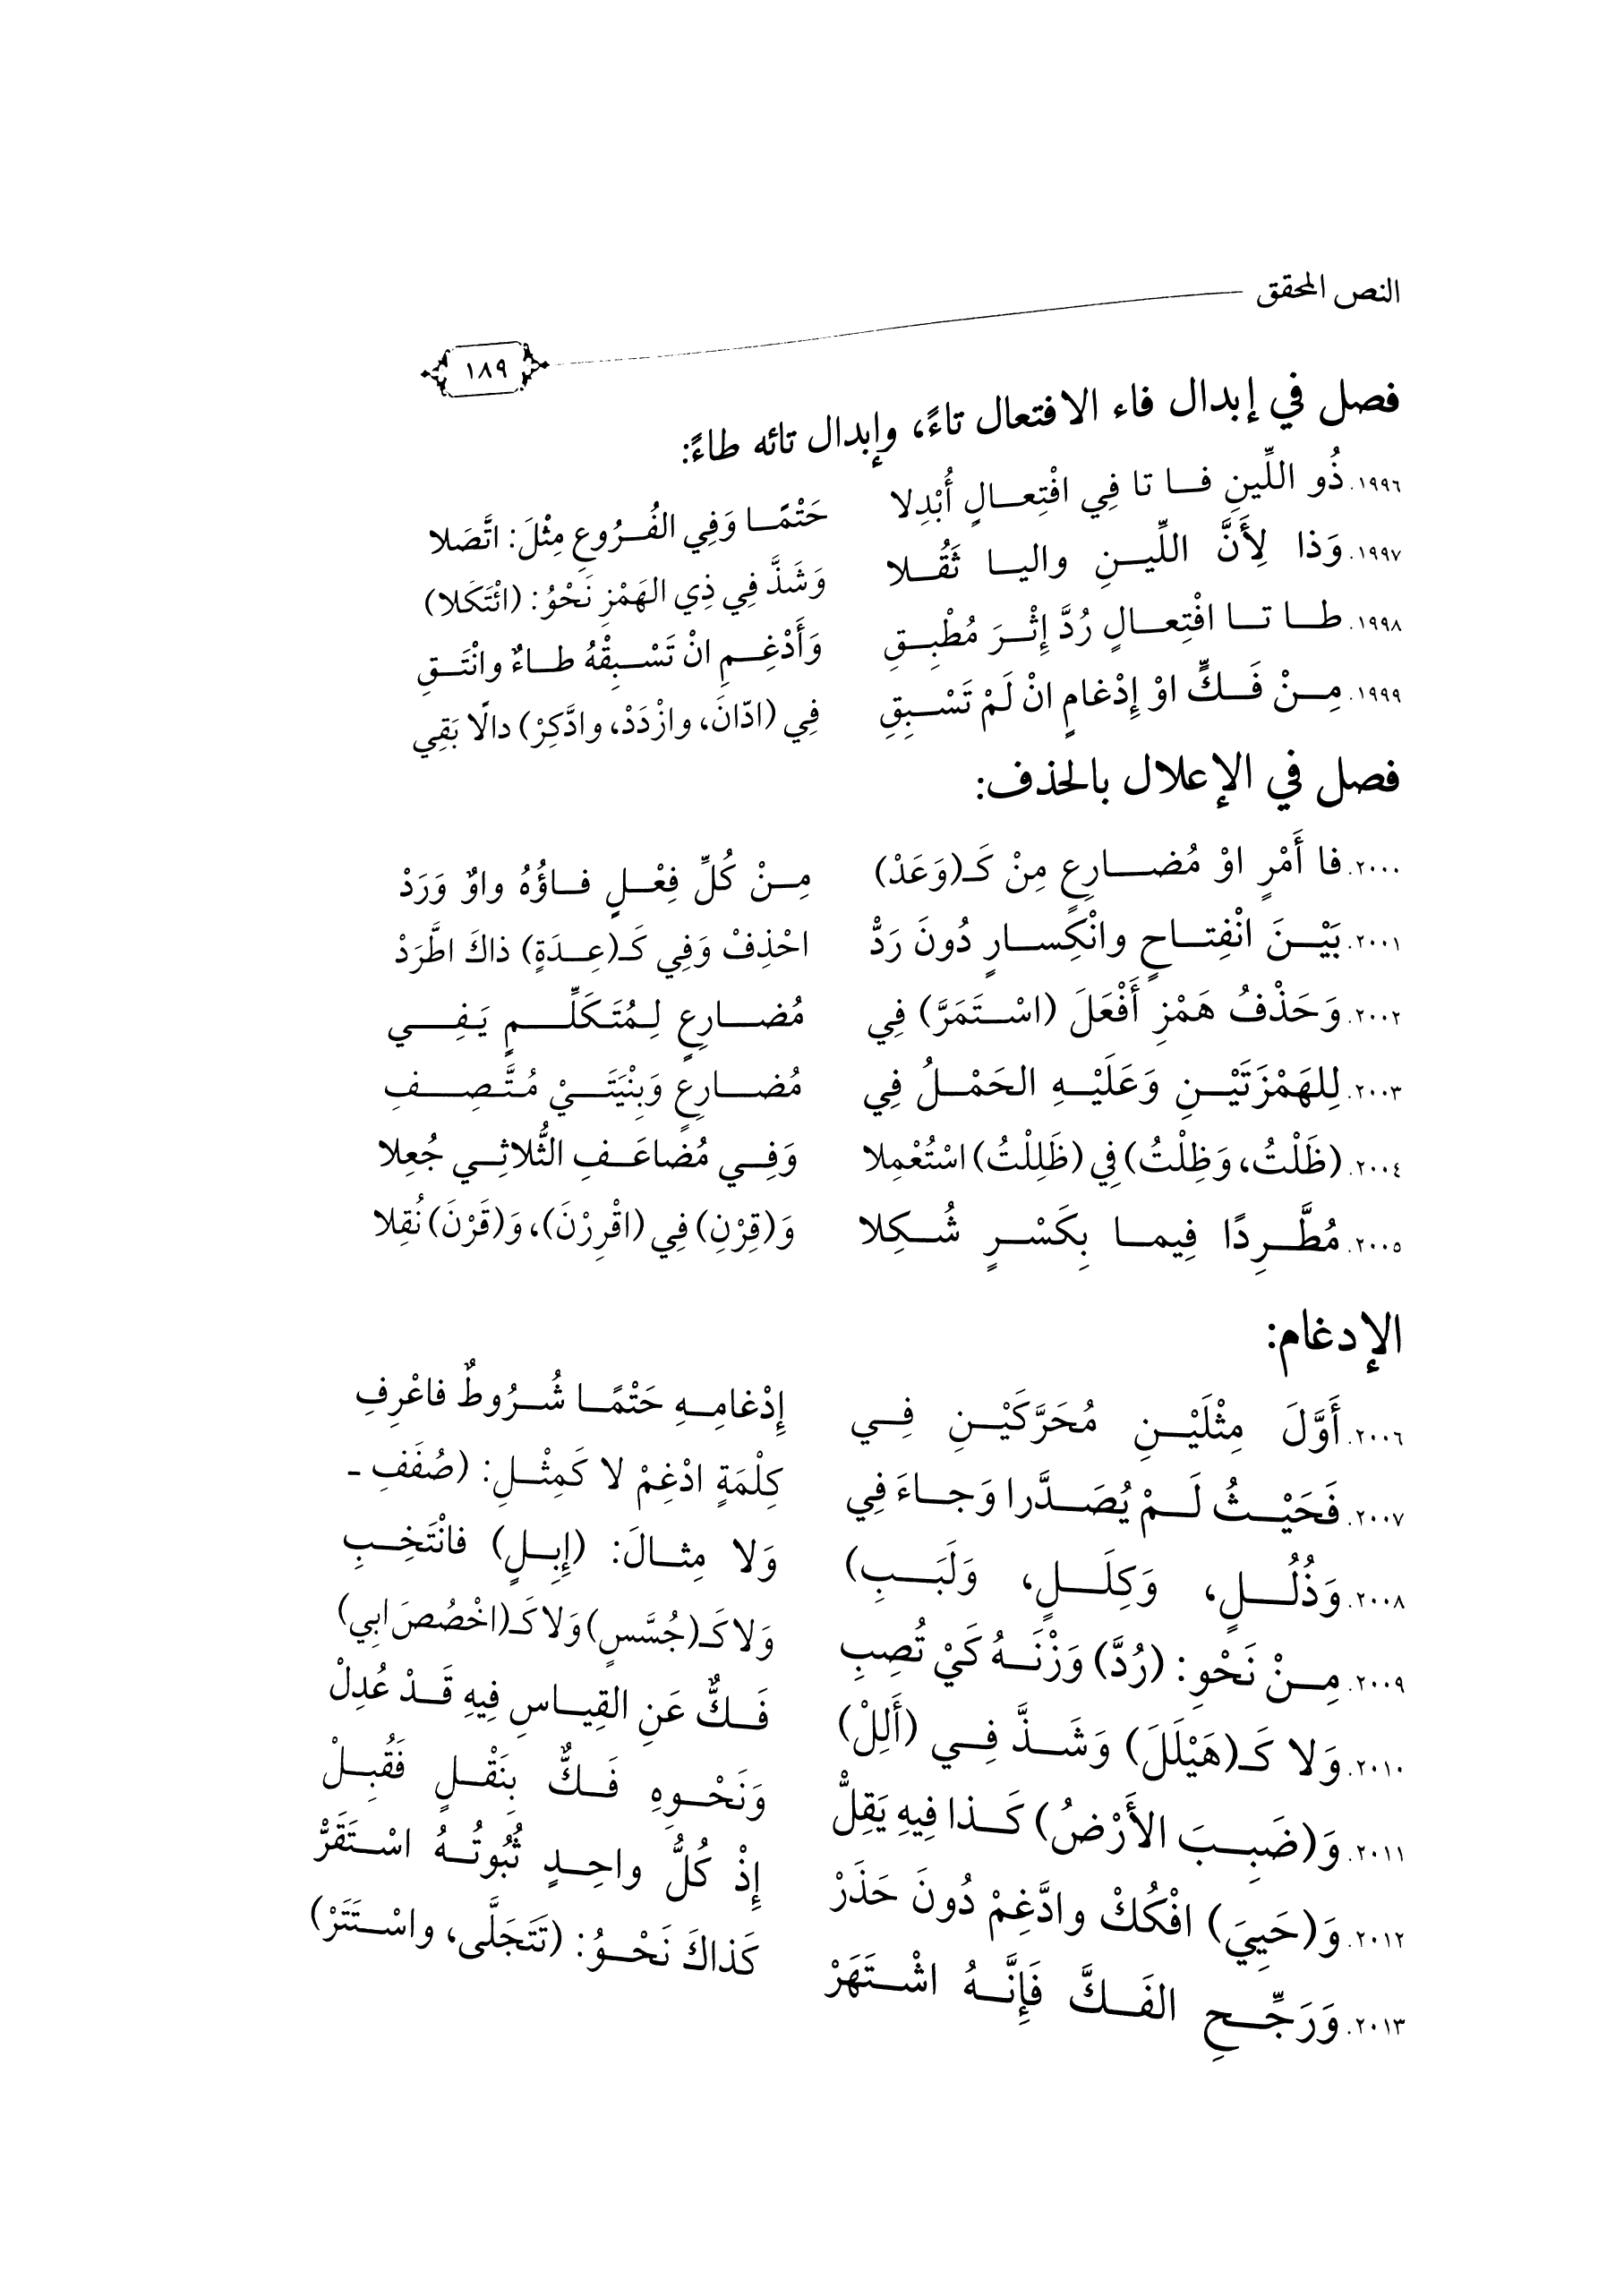 النص المحقق
١٨٩
فصل في إبدال فاء الافتعال تاءً، وإبدال تائه طاءً:
١٩٩٦. ذُو اللِّينِ فـا تا فِي افْتِعـالٍ أُبْدِلا حَتْمًـا وَفِي الفُـرُوعِ مِثْلَ: اتَّصَلا
١٩٩٧. وَذا لِأَنَّ اللِّيـنِ واليـا ثَقُـلا وَشَذَّ فِي ذِي الهَمْزِ نَحْوُ: (ائْتَكَلا)
١٩٩٨. طـا تـا افْتِعـالٍ رُدَّ إِثْـرَ مُطْبِـقِ وَأَدْغِـمِ انْ تَسْـبِقْهُ طـاءٌ وانْتَـقِ
١٩٩٩. مِـنْ فَـكٍّ اوْ إِدْغامٍ انْ لَمْ تَسْـبِقِ فِي (ادّانَ، وازْدَدْ، وادَّكِرْ) دالًا بَقِي
فصل في الإعلال بالحذف:
٢٠٠٠. فا أَمْرٍ اوْ مُضـارِعٍ مِنْ كَـ(وَعَدْ) مِـنْ كُلِّ فِعْـلٍ فـاؤُهُ واوٌ وَرَدْ
٢٠٠١. بَيْـنَ انْفِتـاحٍ وانْكِسـارٍ دُونَ رَدّْ احْذِفْ وَفِي كَـ(عِـدَةٍ) ذاكَ اطَّرَدْ
٢٠٠٢. وَحَذْفُ هَمْزِ أَفْعَلَ (اسْـتَمَرَّ) فِي مُضـارِعٍ لِـمُتَكَلِّـمٍ يَـفِـي
٢٠٠٣. لِلهَمْزَتَيْـنِ وَعَلَيْـهِ الحَمْـلُ فِي مُضـارِعٍ وَبِنْيَتَـيْ مُتَّـصِـفِ
٢٠٠٤. (ظَلْتُ، وَظِلْتُ) فِي (ظَلِلْتُ) اسْتُعْمِلا وَفِـي مُضاعَـفِ الثُّلاثِـي جُعِلا
٢٠٠٥. مُطَّـرِدًا فِيمـا بِكَسْـرٍ شُـكِلا وَ(قِرْنِ) فِي (اقْرِرْنَ)، وَ(قَرْنَ) نُقِلا
الإدغام:
٢٠٠٦. أَوَّلَ مِثْلَيْـنِ مُحَرَّكَيْـنِ فِـي إِدْغامِـهِ حَتْمًـا شُـرُوطٌ فاعْرِفِ
٢٠٠٧. فَحَيْـثُ لَـمْ يُصَـدَّرا وَجـاءَ فِي كِلْمَةٍ ادْغِمْ لا كَمِثْـلِ: (صُفَفِ -
٢٠٠٨. وَذُلُـلٍ، وَكِلَـلٍ، وَلَبَـبِ) وَلا مِثـالَ: (إِبِـلٍ) فانْتَخِـبِ
٢٠٠٩. مِـنْ نَحْوِ: (رُدَّ) وَزْنَـهُ كَيْ تُصِبِ وَلا كَـ(جُسَّسٍ) وَلا كَـ(اخْصُصَ ابِي)
٢٠١٠. وَلا كَـ(هَيْلَلَ) وَشَـذَّ فِـي (أَلِلْ) فَـكٌّ عَنِ القِيـاسِ فِيهِ قَـدْ عُدِلْ
٢٠١١. وَ(ضَبِـبَ الأَرْضُ) كَـذا فِيهِ يَقِلّْ وَنَحْـوِهِ فَـكٌّ بِنَقْـلٍ فَقُبِـلْ
٢٠١٢. وَ(حَيِيَ) افْكُكْ وادَّغِمْ دُونَ حَذَرْ إِذْ كُلُّ واحِـدٍ ثُبُوتُـهُ اسْـتَقَرّْ
٢٠١٣. وَرَجِّـحِ الفَـكَّ فَإِنَّـهُ اشْـتَهَرْ كَذاكَ نَحْـوُ: (تَتَجَلَّى، واسْـتَتَرْ)